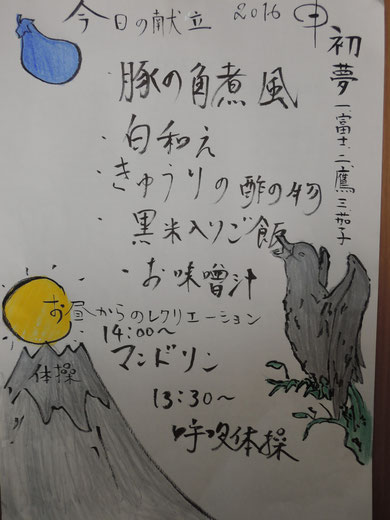 今日の献立 2016 申
初夢 一富士、二鷹 三茄子
・豚の角煮風
・白和え
・きゅうりの酢の物
・黒米入りご飯
・お味噌汁
お昼からのレクリエーション
14:00～
マンドリン
体操
13:30～
呼吸体操